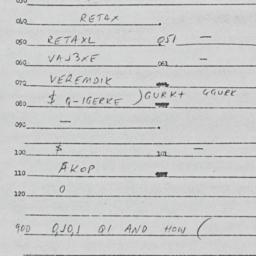 040 RETAX
050 RETAXL 051 —
060 VAJ3XE 061 —
070 VEREMDIK
080 $ G-IGERKE ) GURK+ GGURK
090 —
100 $ 101 —
110 AKOP
120 O
900 0,10,1 Q1 AND HOW (